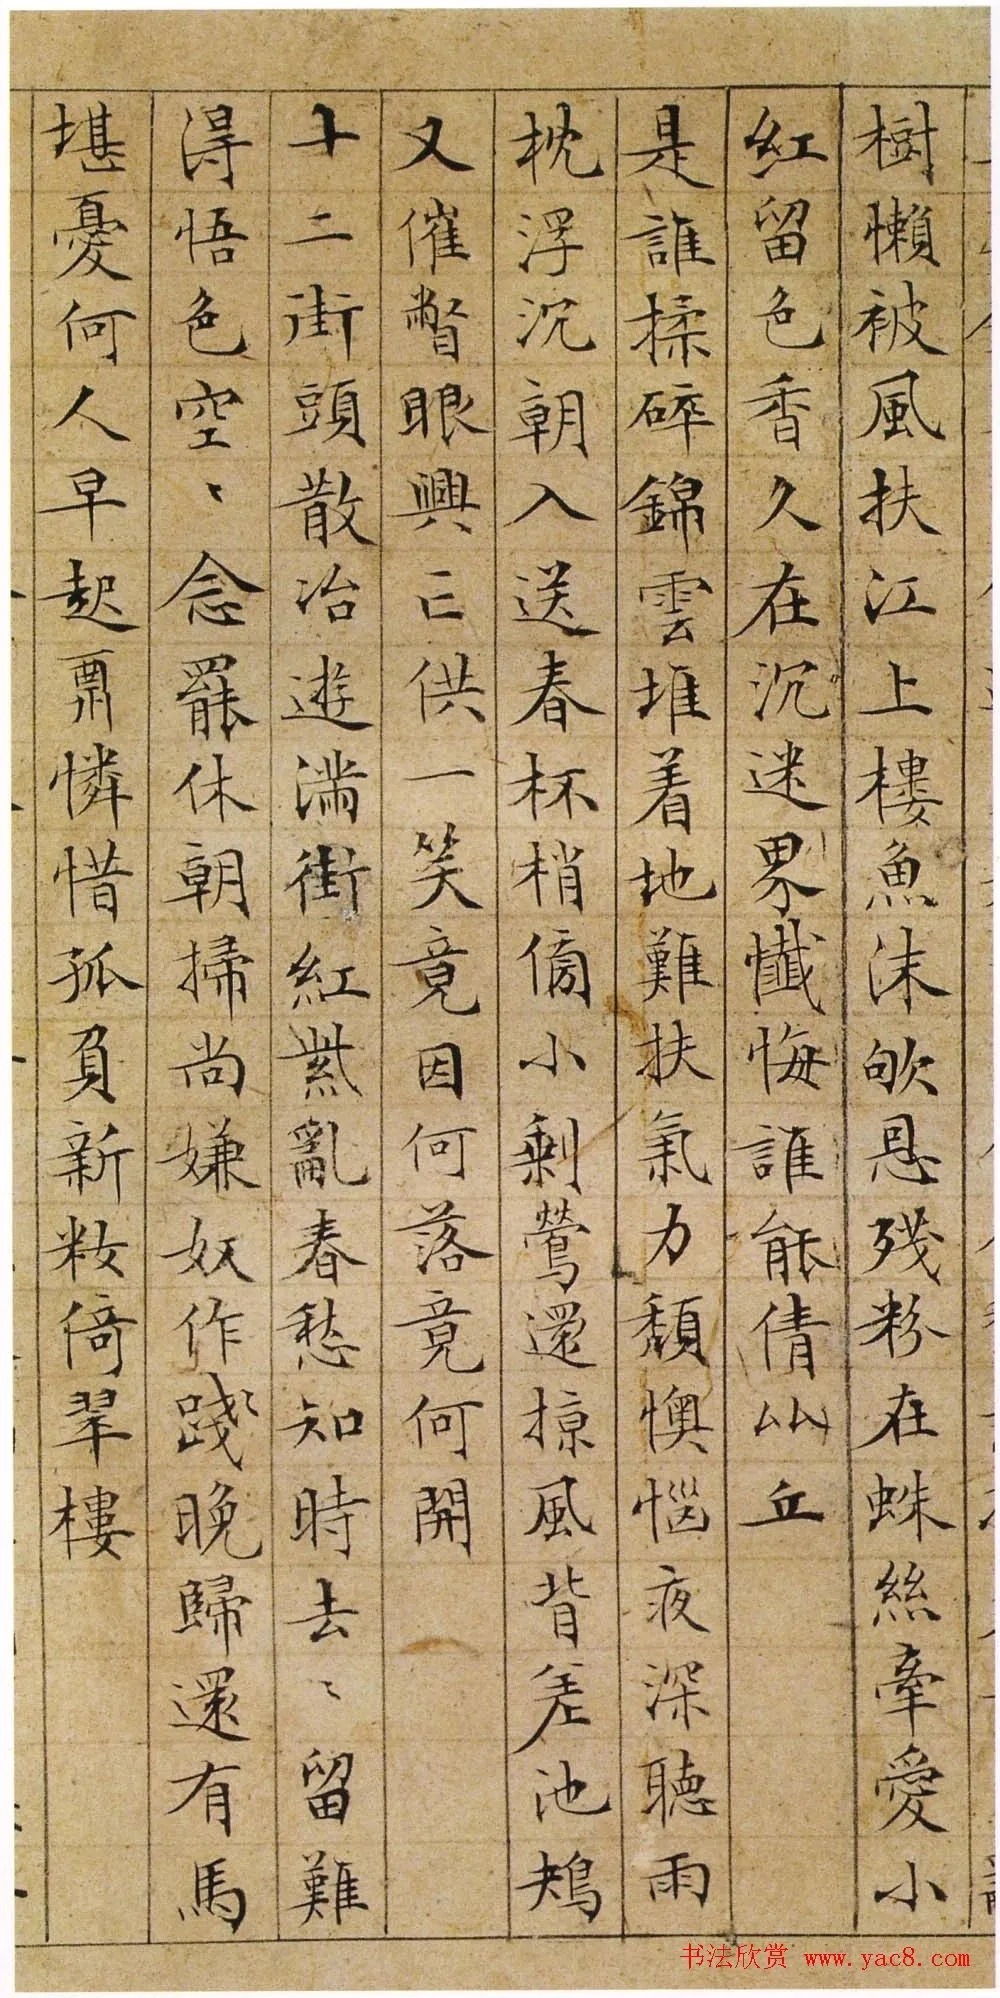 樹懶被風扶江上樓魚沫欨恩殘粉在蛛絲牽愛小
紅留色香久在沉迷界懺悔誰能倩比丘
是誰揉碎錦雲堆着地難扶氣力頹懊惱夜深聽雨
枕浮沉朝入送春杯梢傍小剩鶯還掠風背差池鳺
又催瞥眼興亡供一笑竟因何落竟何開
十二街頭散冶遊滿街紅紫亂春愁知時去〻留難
得悟色空〻念罷休朝掃尚嫌奴作踐晚歸還有馬
堪憂何人早起𠕅憐惜孤負新妝倚翠樓
书法欣赏 www.yac8.com